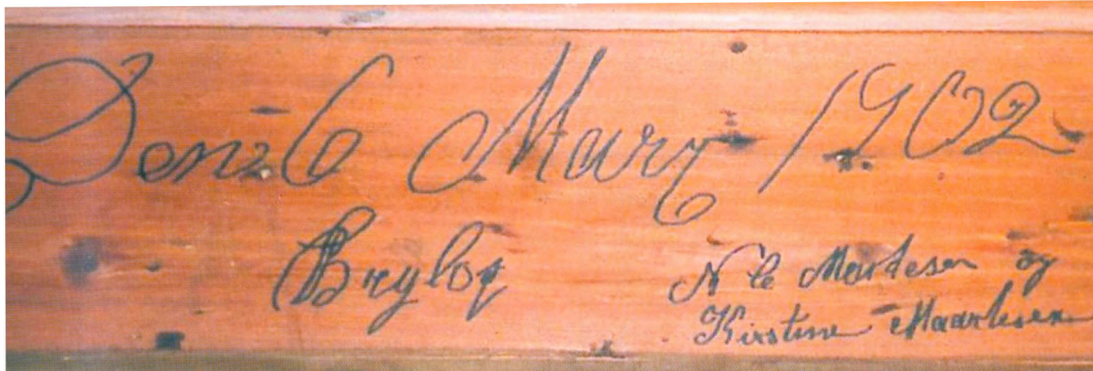 Den 26 Marz 1902
Brylop
N C Martesen og
Kirstine Maartesen